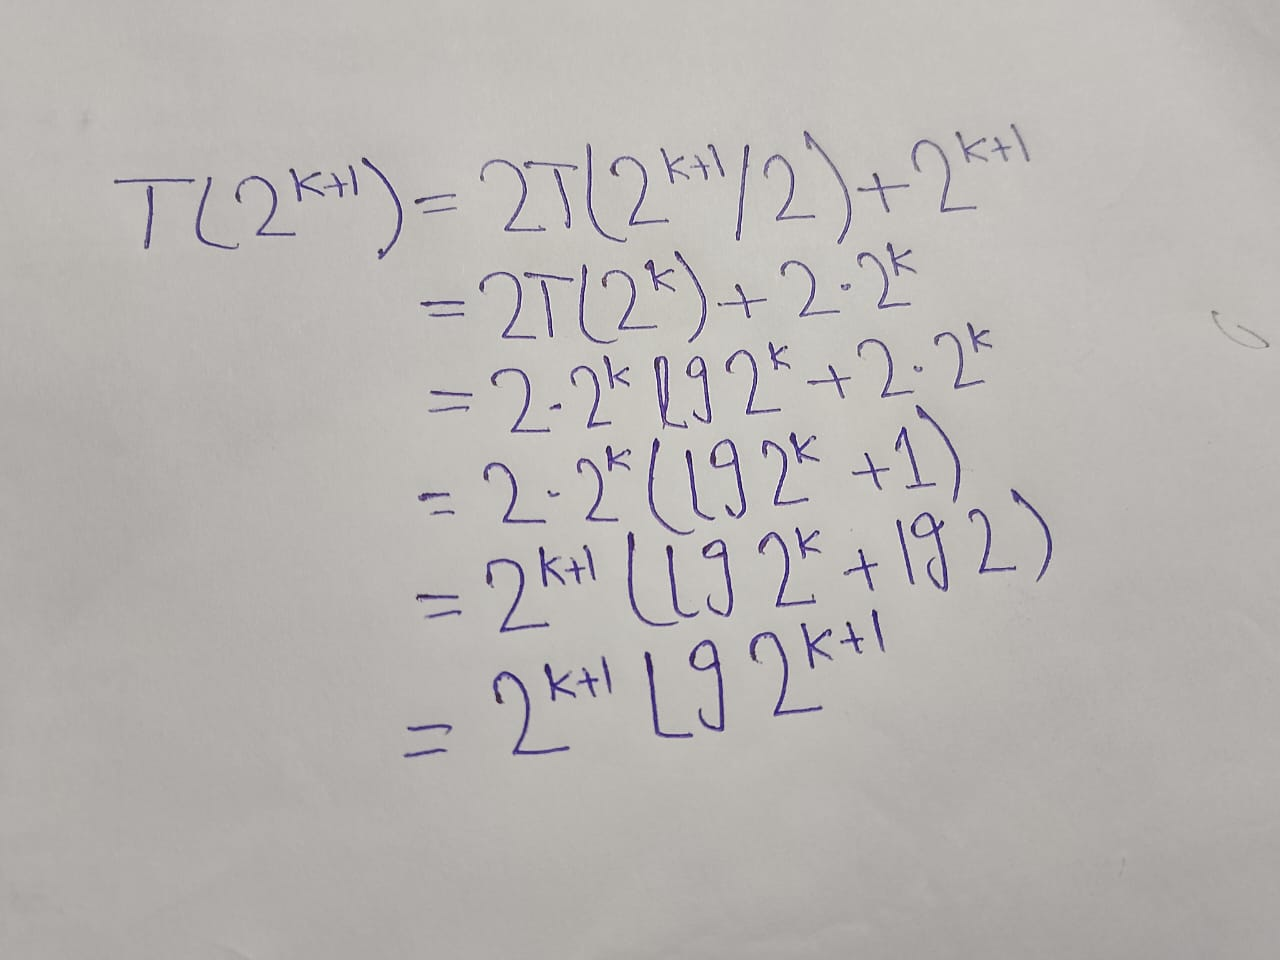 T(2^{k+1}) = 2T(2^{k+1}/2) + 2^{k+1}
= 2T(2^k) + 2·2^k
= 2·2^k lg 2^k + 2·2^k
= 2·2^k (lg 2^k + 1)
= 2^{k+1} (lg 2^k + lg 2)
= 2^{k+1} lg 2^{k+1}